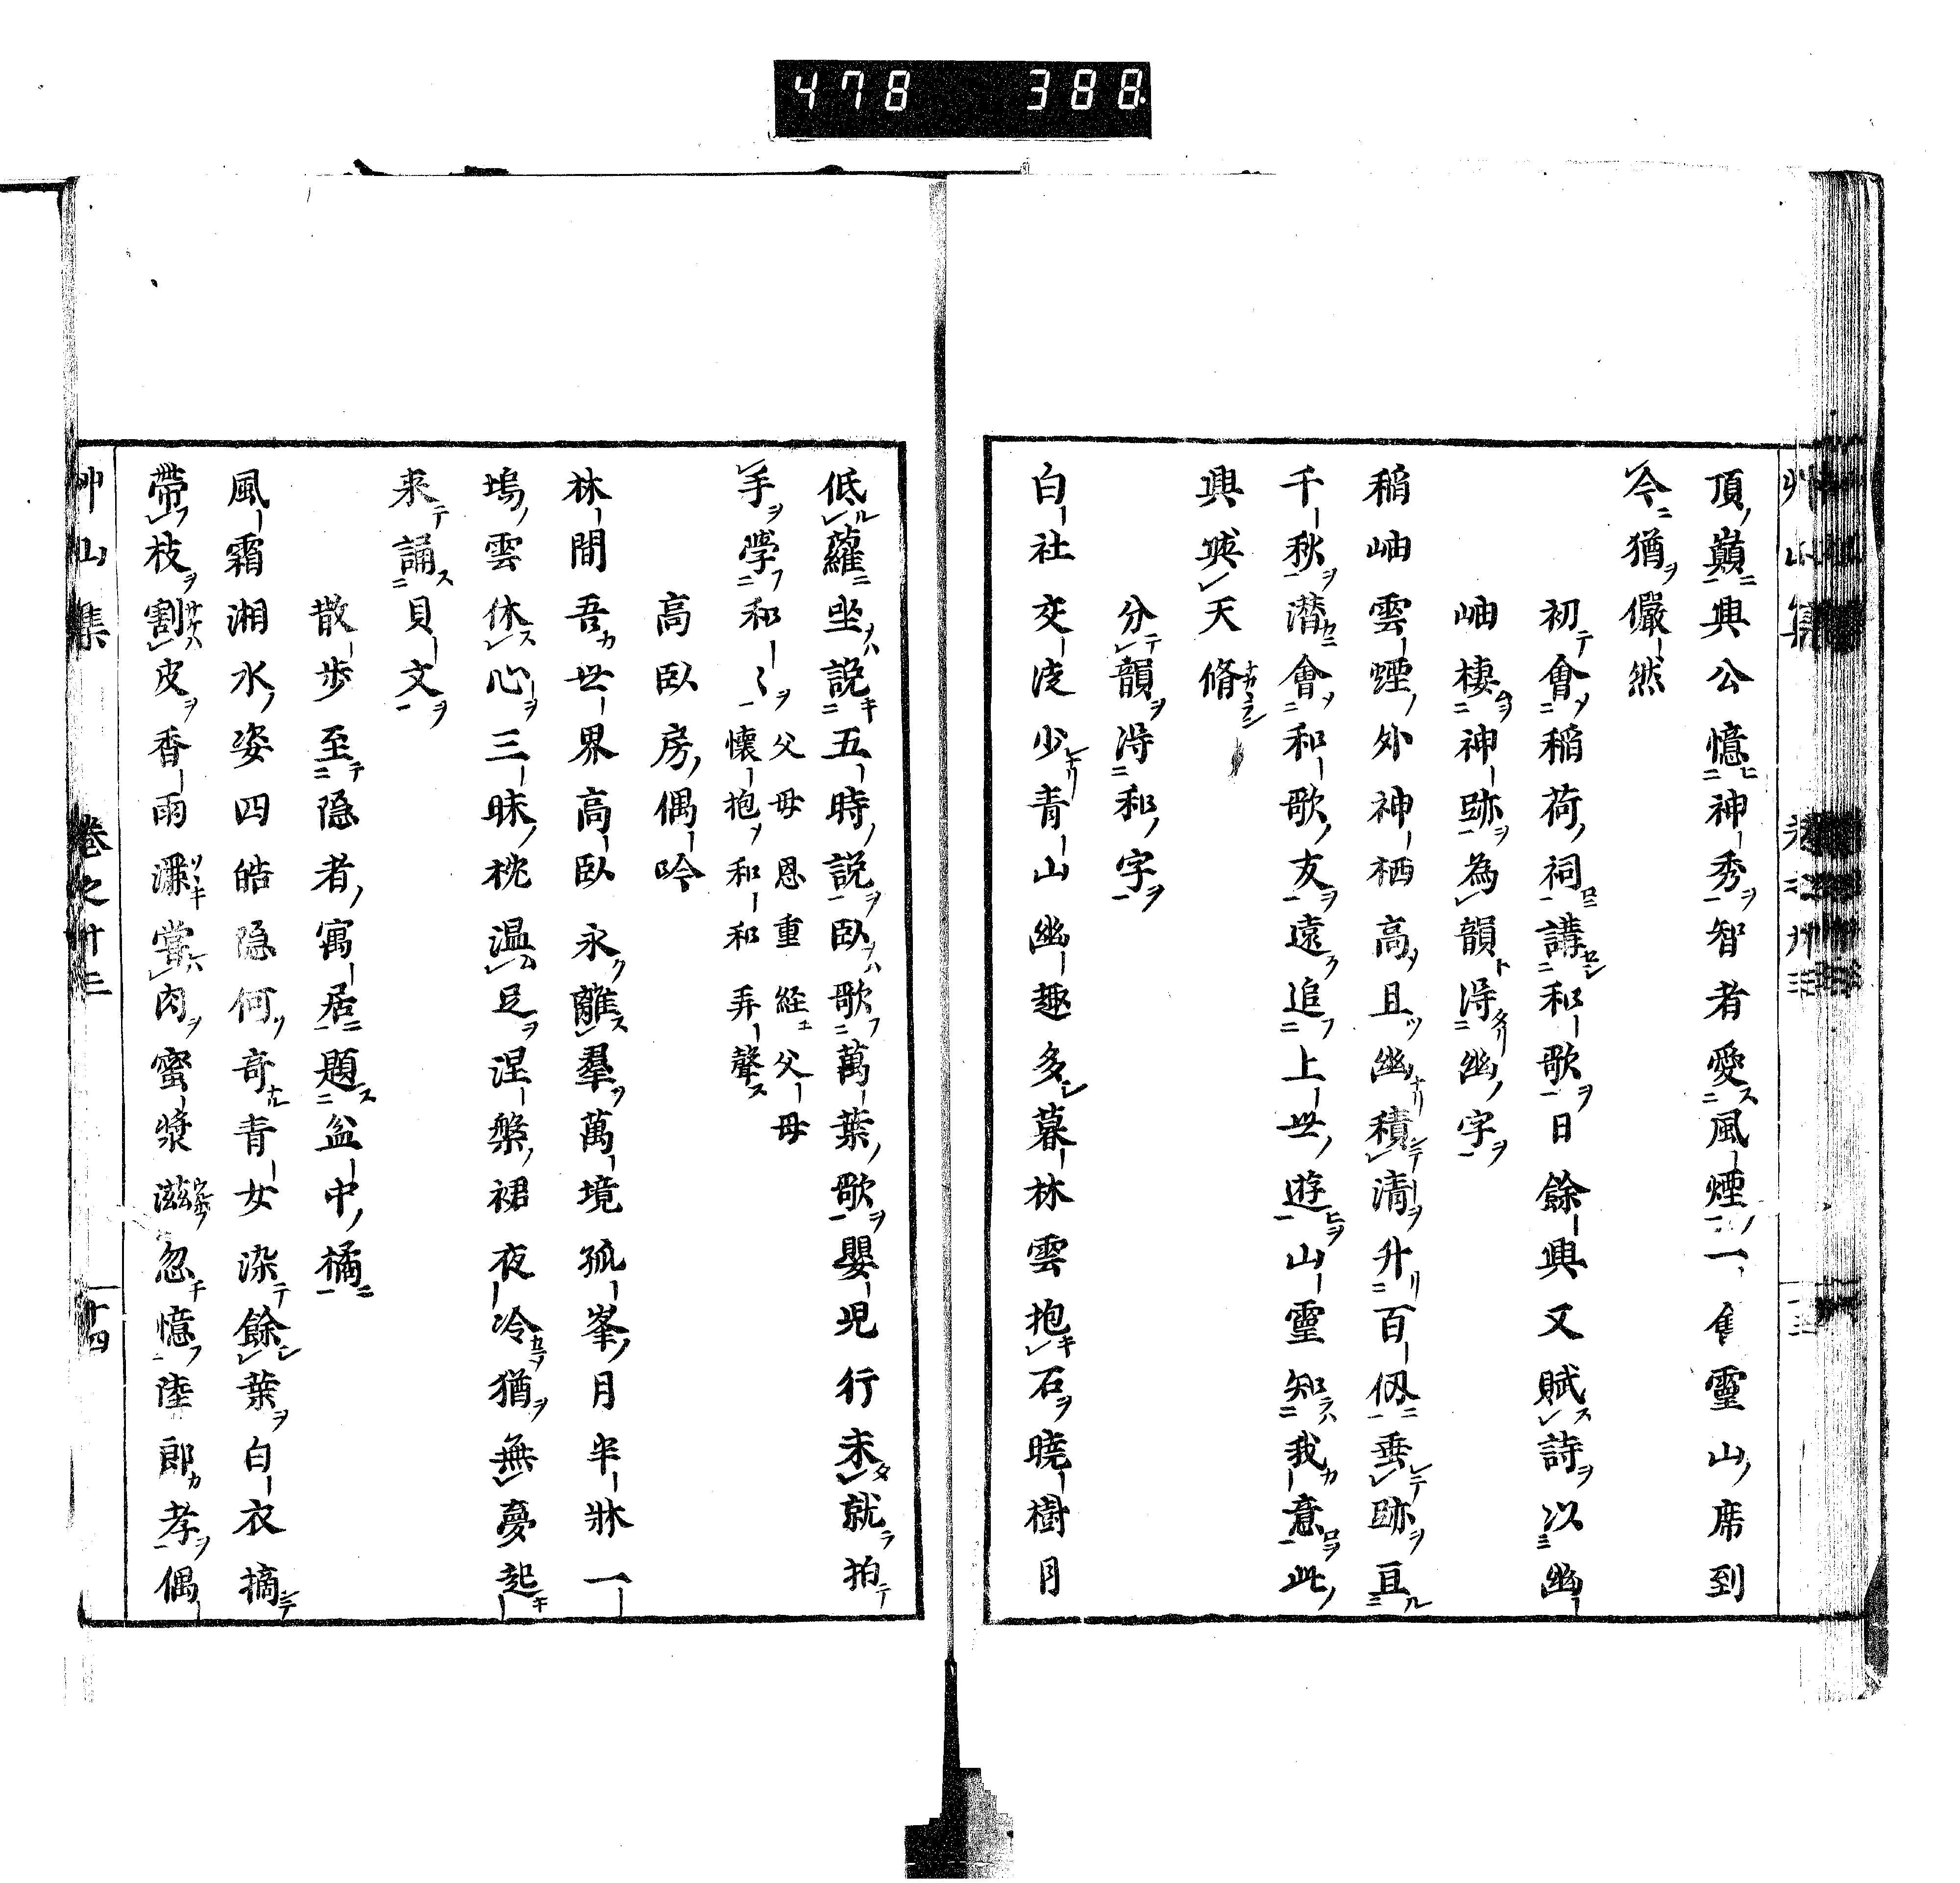 478 388
頂巔興公憶神秀智者愛風煙一隻靈山席到
今猶儼然
初會稲荷祠講和歌日餘興又賦詩以幽
岫棲神跡為韻得幽字
稲岫雲煙外神栖高且幽積清升百仭垂跡亘
千秋潜會和歌友遠追上世遊山靈知我意此
興莫天脩
分韻得和字
白社交淡少青山幽趣多暮林雲抱石曉樹月
低蘿坐説五時説臥歌萬葉歌嬰児行未就拍
手學和〻 父母恩重経父母
懐抱和和弄聲
高臥房偶吟
林間吾世界高臥永離羣萬境孤峯月半牀一
塢雲休心三昧枕温足涅槃裙夜冷猶無夢起
来誦貝文
散歩至隠者寓居題盆中橘
風霜湘水姿四皓隠何奇青女染餘葉白衣摘
帶枝割皮香雨灑嘗肉蜜漿滋忽憶陸郎孝偶
艸山集 巻之廿三 十四